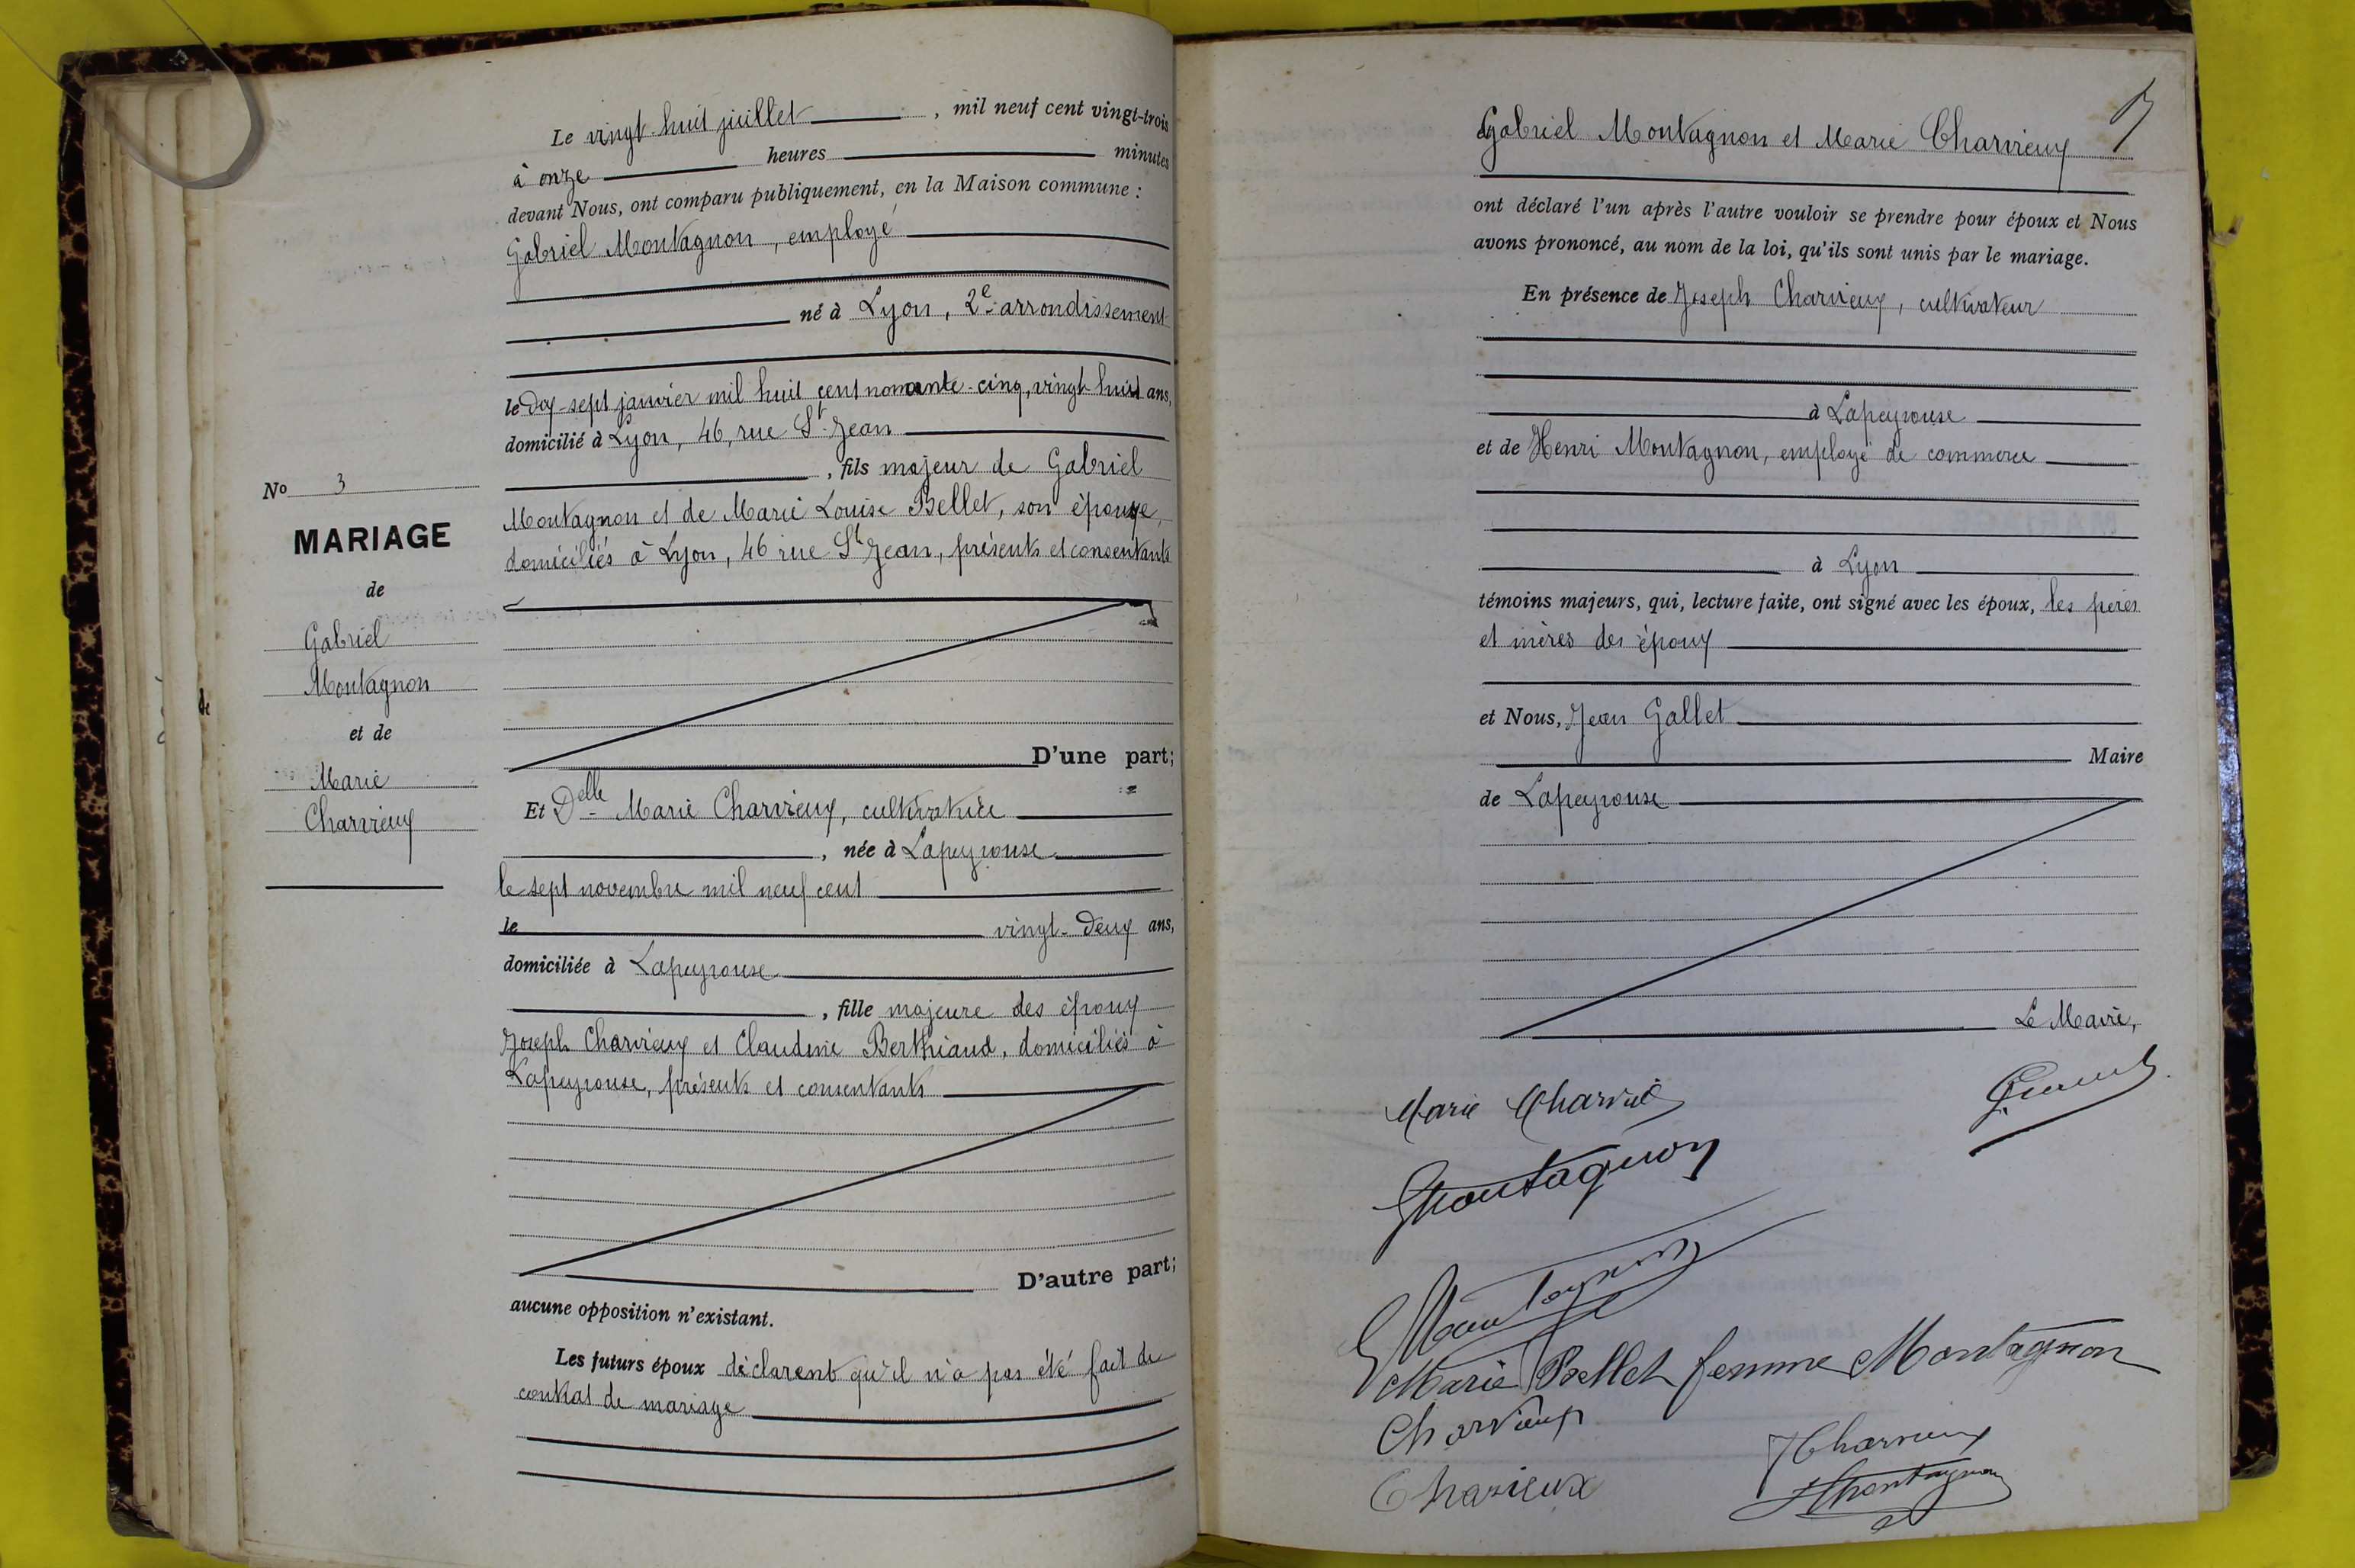 Le vingt-huit juillet, mil neuf cent vingt-trois
à onze heures minutes
devant Nous, ont comparu publiquement, en la Maison commune :
Gabriel Montagnon, employé
né à Lyon, 2e arrondissement
le dix-sept janvier mil huit cent nonante-cinq, vingt-huit ans,
domicilié à Lyon, 46, rue St-Jean
, fils majeur de Gabriel
Montagnon et de Marie Louise Bellet, son épouse,
domiciliés à Lyon, 46 rue St Jean, présents et consentants
D'une part;
No 3
MARIAGE
de
Gabriel
Montagnon
et de
Marie
Charvieux
Et Delle Marie Charvieux, cultivatrice
, née à Lapeyrouse
le sept novembre mil neuf cent
le vingt-deux ans,
domiciliée à Lapeyrouse
, fille majeure des époux
Joseph Charvieux et Claudine Berthiaud, domiciliés à
Lapeyrouse, présents et consentants
D'autre part;
aucune opposition n'existant.
Les futurs époux déclarent qu'il n'a pas été fait de
contrat de mariage
Gabriel Montagnon et Marie Charvieux
ont déclaré l'un après l'autre vouloir se prendre pour époux et Nous
avons prononcé, au nom de la loi, qu'ils sont unis par le mariage.
En présence de Joseph Charvieux, cultivateur
à Lapeyrouse
et de Henri Montagnon, employé de commerce
à Lyon
témoins majeurs, qui, lecture faite, ont signé avec les époux, les pères
et mères des époux
et Nous, Jean Gallet
Maire
de Lapeyrouse
Le Maire,
Marie Charvie
GMontagnon
GMontagnon
Marie Bellet femme Montagnon
Charvieux
JCharvieux
Charieux
HMontagnon